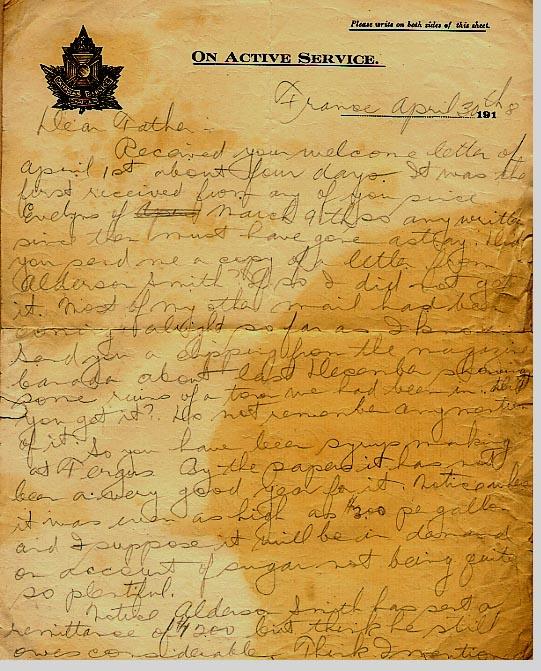 Please write on both sides of this sheet.
ON ACTIVE SERVICE.
France April 30th 1918
Dear Father -
Received your welcome letter of
April 1st about four days. It was the
first received from any of you since
Evelyns of March 9th so any written
since then must have gone astray. Did
you send me a copy of a letter from
Alderson Smith If so I did not get
it. Most of my other mail had been
coming alright so far as I know
Send you a clipping from the magazine
Canada about last December showing
some ruins of a town we had been in. Did
you get it? Do not remember any mention
of it.
So you have been syrup making
at Fergus By the papers it has not
been a very good year for it. Notice where
it was even as high as $3.00 per gallon
and I suppose it will be in demand
on account of sugar not being quite
so plentiful.
Notice Alderson Smith has sent a
remittance of $200 but think he still
owes considerable. Think I mentioned